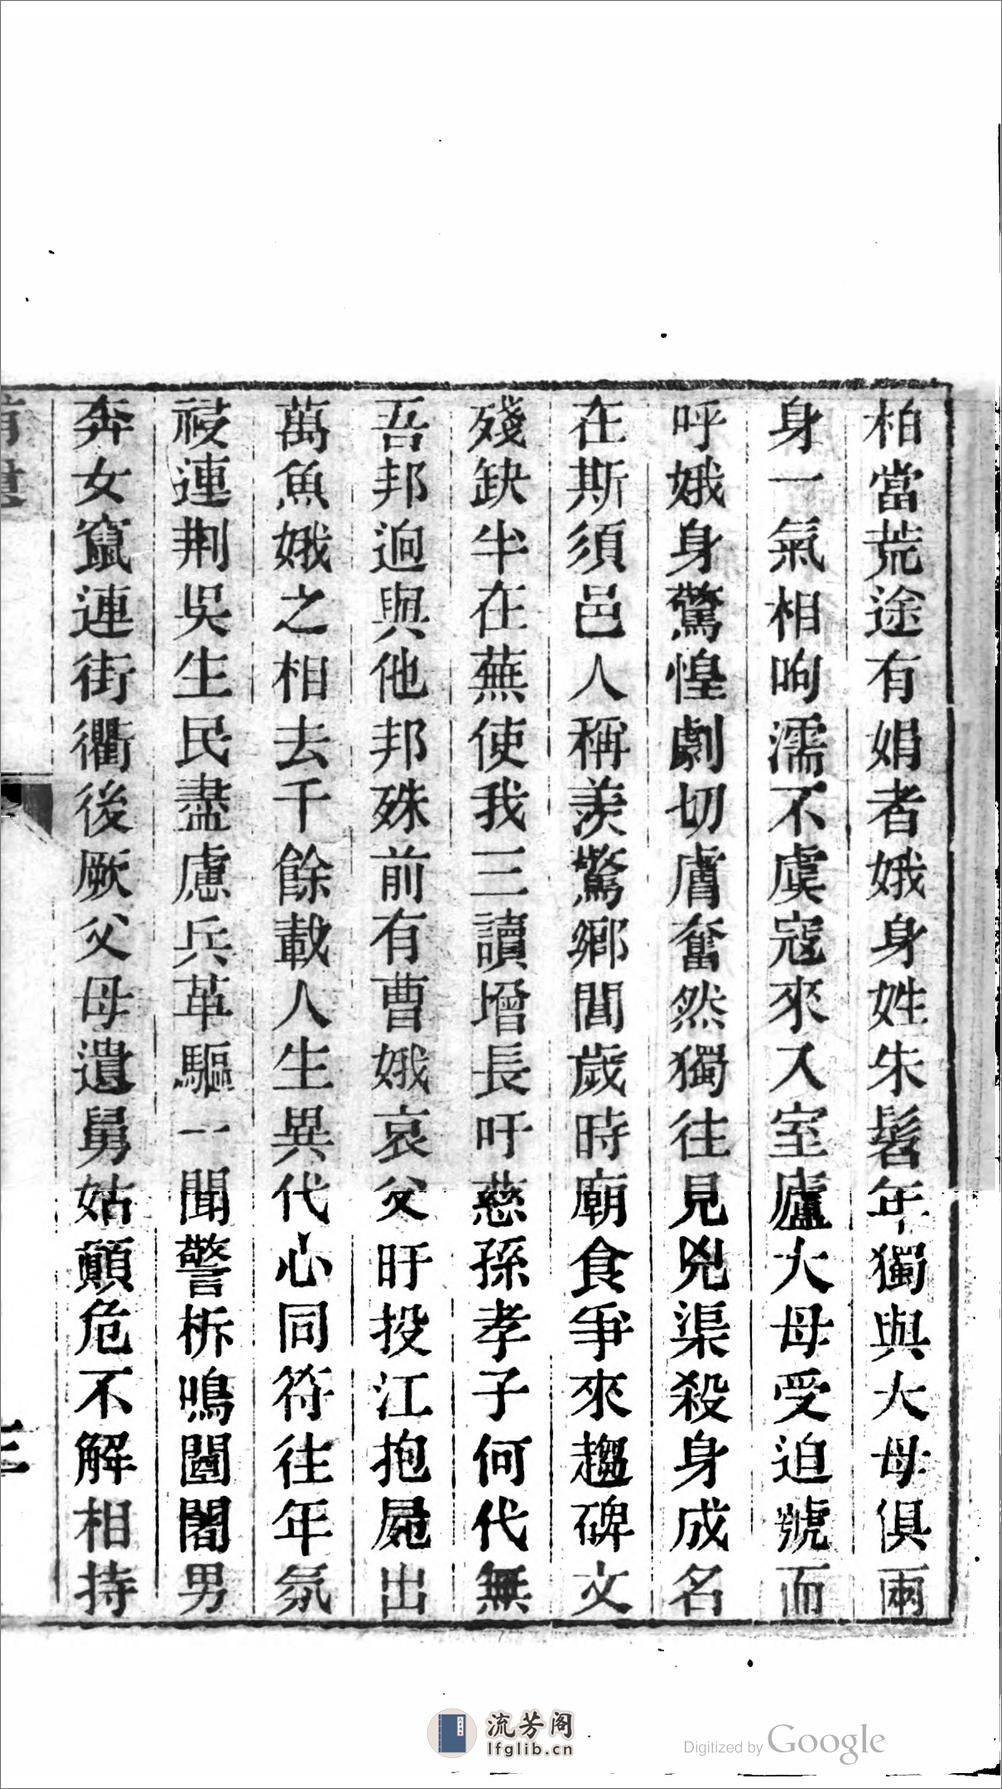 柏當荒途有娟者娥身姓朱髫年獨與大母俱兩
身一氣相呴濡不虞寇來入室廬大母受迫號而
呼娥身驚惶劇切膚奮然獨往見兇渠殺身成名
在斯須邑人稱羨驚鄉閭歲時廟食爭來趨碑文
殘缺半在蕪使我三讀增長吁慈孫孝子何代無
吾邦迥與他邦殊前有曹娥哀父盱投江抱屍出
萬魚娥之相去千餘載人生異代心同符往年氛
祲連荆吳生民盡慮兵革驅一聞警柝鳴闉闍男
奔女竄連街衢後厥父母遺舅姑顚危不解相持
三
流芳阁
lfglib.cn
Digitized by Google